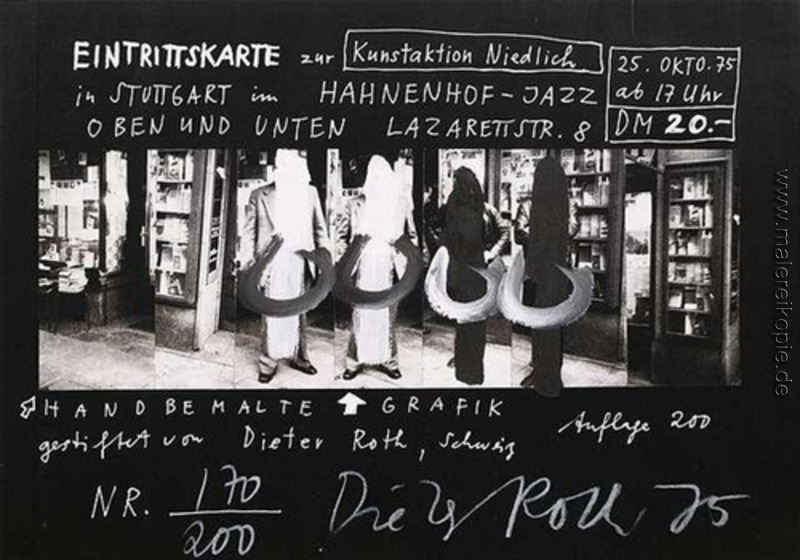 EINTRITTSKARTE zur Kunstaktion Niedlich
in STUTTGART im HAHNENHOF-JAZZ
OBEN UND UNTEN LAZARETTSTR. 8
25. OKTO. 75
ab 17 Uhr
DM 20.-
HANDBEMALTE GRAFIK
gestiftet von Dieter Roth, Schweiz
Auflage 200
NR. 170/200 Dieter Roth 75
www.malereikopie.de